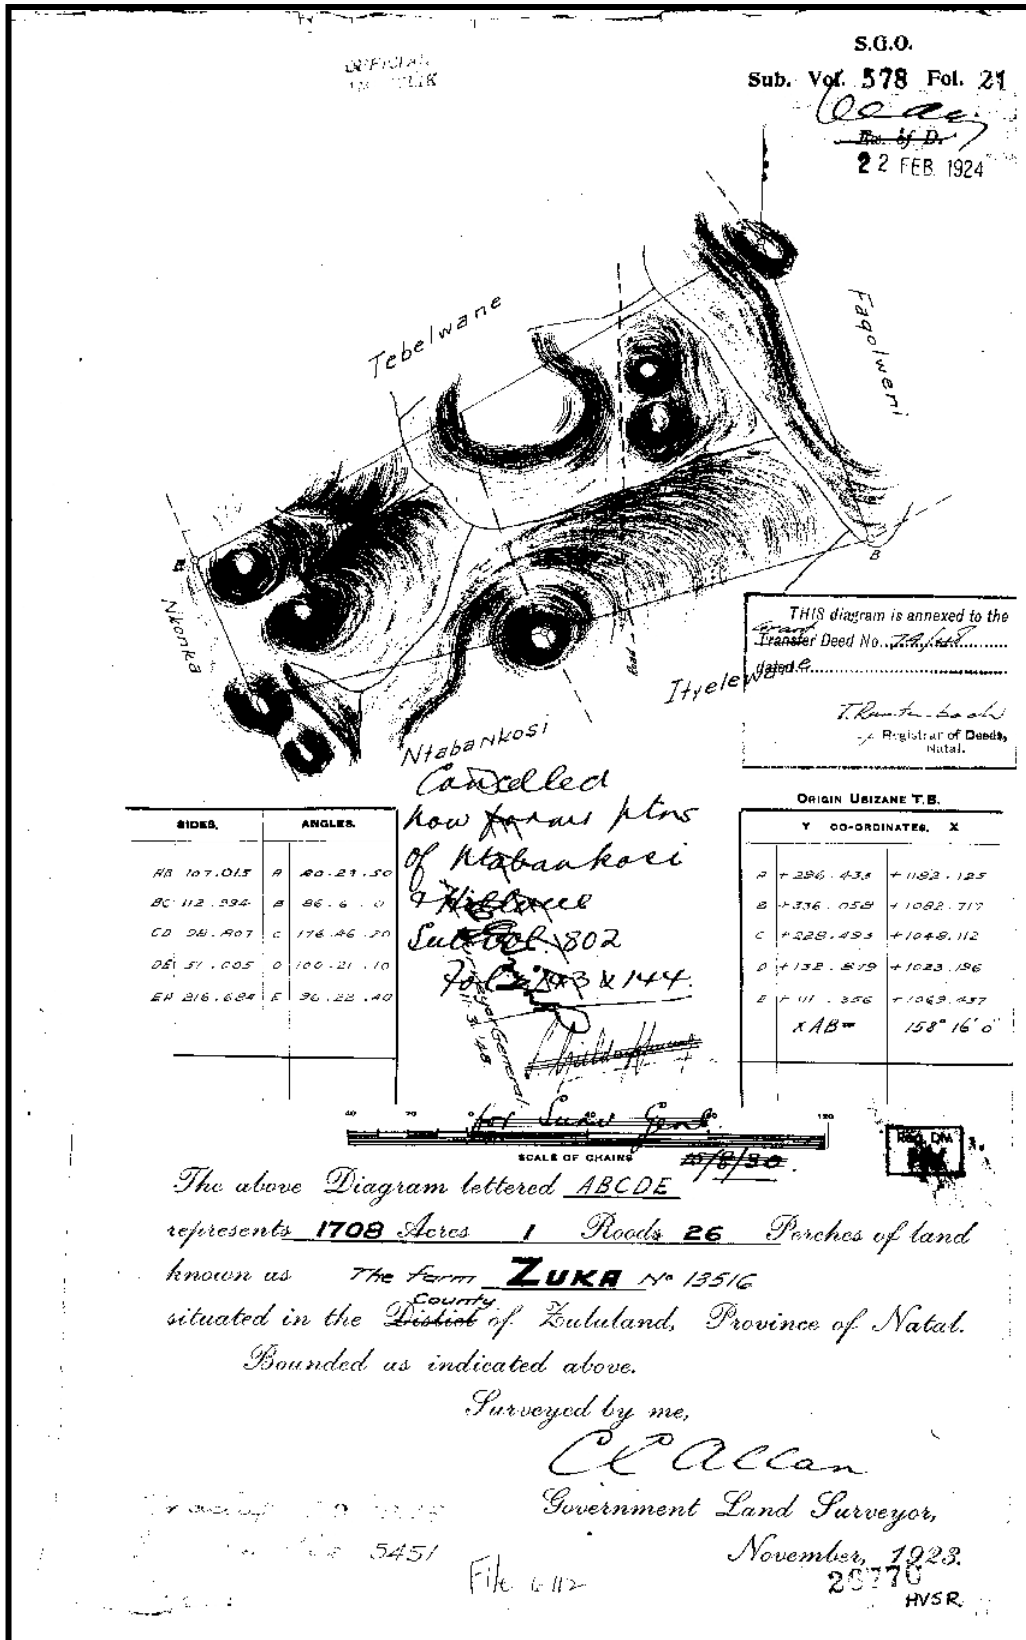 S.G.O.
Sub. Vol. 578 Fol. 21
No. of D.
22 FEB. 1924
OFFICIAL
Tebelwane
Fagolweni
B
Nkonka
Road
Ityelewane
Ntabankosi
THIS diagram is annexed to the
Grant
Transfer Deed No.
dated
Registrar of Deeds,
Natal.
Cancelled
now forms ptns
of Ntabankosi
&
Sub Vol. 802
Fol. 143 & 144.
Surveyor General
for Surv Genl.
15/8/30.
SIDES. ANGLES.
AB 107.015 A 80.29.50
BC 112.994 B 86.6.0
CD 98.807 C 176.46.20
DE 51.005 D 100.21.10
EA 216.684 E 96.22.40
ORIGIN UBIZANE T.B.
Y CO-ORDINATES. X
A +296.435 +1182.125
B +336.058 +1082.717
C +228.493 +1048.112
D +132.879 +1023.196
E +111.356 +1069.437
x AB= 158° 16' 0"
SCALE OF CHAINS
120
The above Diagram lettered ABCDE
represents 1708 Acres 1 Roods 26 Perches of land
known as The Farm ZUKA No 13516
County
situated in the District of Zululand, Province of Natal.
Bounded as indicated above.
Surveyed by me,
C C Allan
Government Land Surveyor,
November, 1923.
5451
File 6112
26770
HVSR.